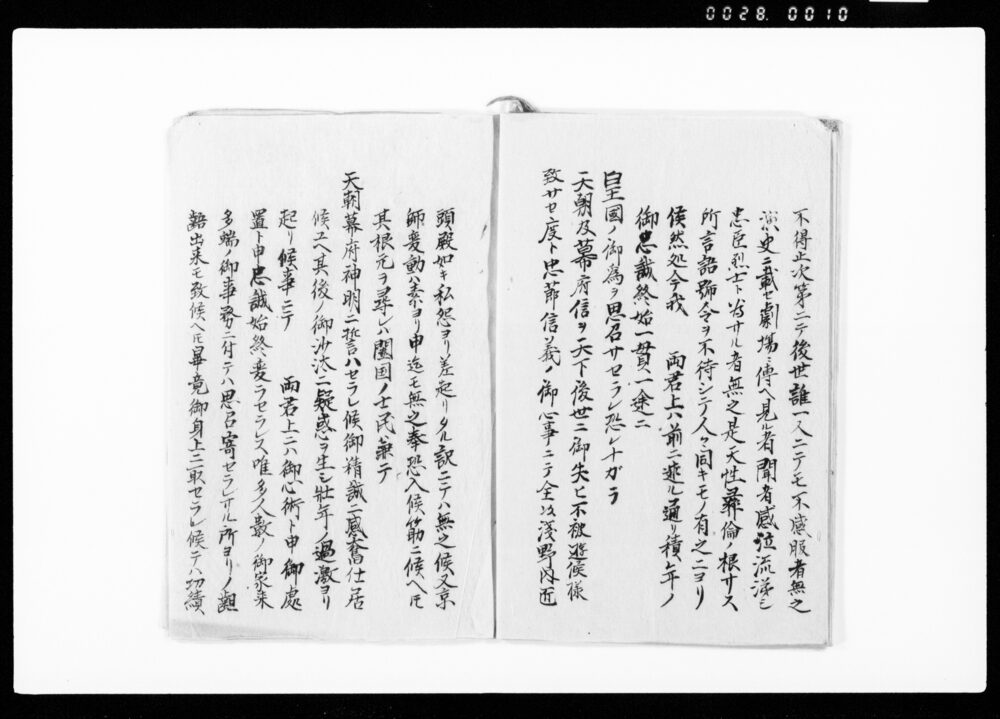 0028. 0010
不得止次第ニテ後世誰一人ニテモ不感服者無之
演史ニ載セ劇場ニ傳ヘ見ル者聞者感泣流涕シ
忠臣烈士ト為サル者無之是天性彝倫ノ根サス
所言語號令ヲ不待シテ人々同キモノ有之ニヨリ
候然処今我　両君上ハ前ニ述ル通リ積年ノ
御忠誠終始一貫一途ニ
皇国ノ御為ヲ思召サセラレ恐レナガラ
天朝及幕府信ヲ天下後世ニ御失ヒ不被遊候様
致サセ度ト忠節信義ノ御心事ニテ全ク浅野内匠
頭殿如キ私怨ヨリ差起リタル訳ニテハ無之候又京
師変動ハ素ヨリ申迄モ無之奉恐入候筋ニ候ヘ𪜈
其根元ヲ尋レハ闔国ノ士民兼テ
天朝幕府神明ニ誓ハセラレ候御精誠ニ感奮仕居
候ユヘ其後ノ御沙汰ニ疑惑ヲ生シ壮年ノ過激ヨリ
起リ候事ニテ　両君上ニハ御心術ト申御處
置ト申忠誠始終変ラセラレス唯多人数ノ御家来
多端ノ御事務ニ付テハ思召寄セラレサル所ヨリノ齟
齬出来モ致候ヘ𪜈畢竟御身上ニ取セラレ候テハ功績